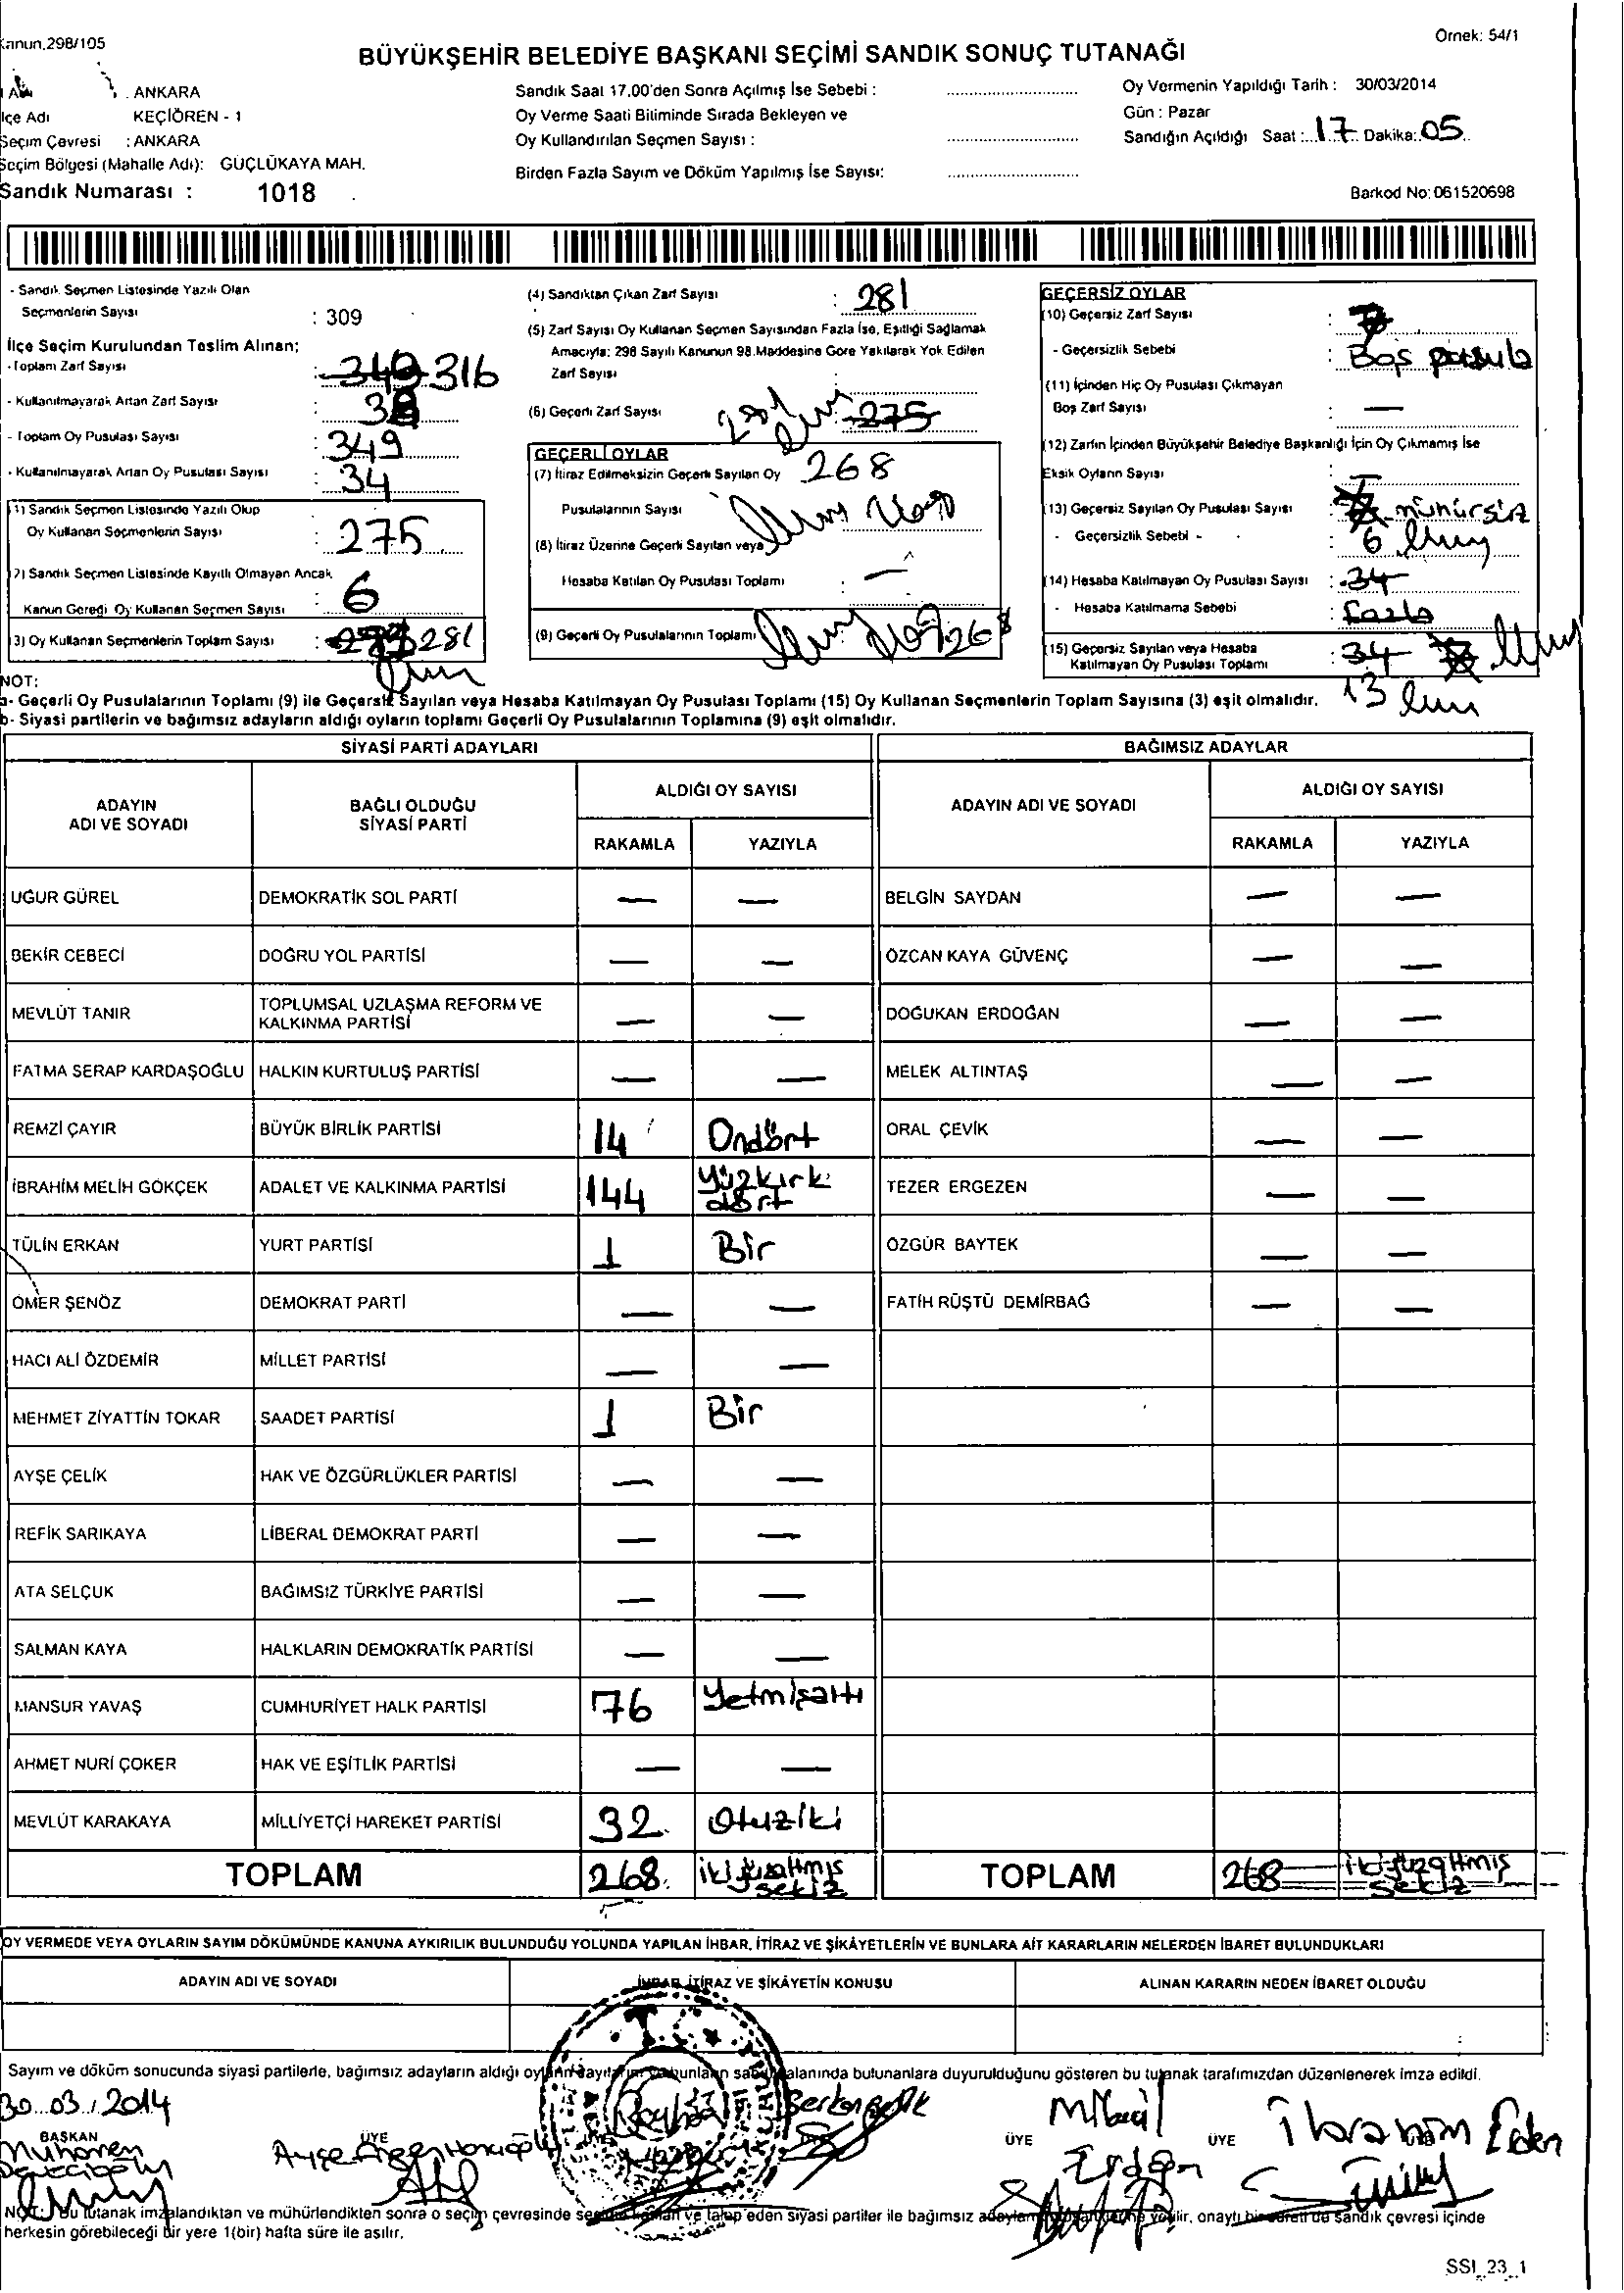 Kanun.298/105
Örnek: 54/1
BÜYÜKŞEHİR BELEDİYE BAŞKANI SEÇİMİ SANDIK SONUÇ TUTANAĞI
ANKARA
İlçe Adı KEÇİÖREN - 1
Seçim Çevresi : ANKARA
Seçim Bölgesi (Mahalle Adı): GÜÇLÜKAYA MAH.
Sandık Numarası : 1018
Sandık Saat 17.00'den Sonra Açılmış İse Sebebi :
Oy Verme Saati Bitiminde Sırada Bekleyen ve
Oy Kullandırılan Seçmen Sayısı :
Birden Fazla Sayım ve Döküm Yapılmış İse Sayısı:
Oy Vermenin Yapıldığı Tarih : 30/03/2014
Gün : Pazar
Sandığın Açıldığı Saat : 17 Dakika: 05
Barkod No: 061520698
- Sandık Seçmen Listesinde Yazılı Olan
Seçmenlerin Sayısı : 309
İlçe Seçim Kurulundan Teslim Alınan;
- Toplam Zarf Sayısı : 316
- Kullanılmayarak Artan Zarf Sayısı :
- Toplam Oy Pusulası Sayısı : 349
- Kullanılmayarak Artan Oy Pusulası Sayısı : 34
(1) Sandık Seçmen Listesinde Yazılı Olup
Oy Kullanan Seçmenlerin Sayısı : 275
(2) Sandık Seçmen Listesinde Kayıtlı Olmayan Ancak
Kanun Gereği Oy Kullanan Seçmen Sayısı : 6
(3) Oy Kullanan Seçmenlerin Toplam Sayısı : 281
(4) Sandıktan Çıkan Zarf Sayısı : 281
(5) Zarf Sayısı Oy Kullanan Seçmen Sayısından Fazla İse, Eşitliği Sağlamak
Amacıyla: 298 Sayılı Kanunun 98.Maddesine Göre Yakılarak Yok Edilen
Zarf Sayısı :
(6) Geçerli Zarf Sayısı : 275
GEÇERLİ OYLAR
(7) İtiraz Edilmeksizin Geçerli Sayılan Oy 268
Pusulalarının Sayısı
(8) İtiraz Üzerine Geçerli Sayılan veya
Hesaba Katılan Oy Pusulası Toplamı : —
(9) Geçerli Oy Pusulalarının Toplamı 268
GEÇERSİZ OYLAR
(10) Geçersiz Zarf Sayısı :
- Geçersizlik Sebebi : Boş pusula
(11) İçinden Hiç Oy Pusulası Çıkmayan
Boş Zarf Sayısı : —
(12) Zarfın İçinden Büyükşehir Belediye Başkanlığı İçin Oy Çıkmamış İse
Eksik Oyların Sayısı :
(13) Geçersiz Sayılan Oy Pusulası Sayısı : mühürsüz
- Geçersizlik Sebebi - : 6
(14) Hesaba Katılmayan Oy Pusulası Sayısı : 34
- Hesaba Katılmama Sebebi : Fazla
(15) Geçersiz Sayılan veya Hesaba
Katılmayan Oy Pusulası Toplamı : 34
13
NOT:
a- Geçerli Oy Pusulalarının Toplamı (9) ile Geçersiz Sayılan veya Hesaba Katılmayan Oy Pusulası Toplamı (15) Oy Kullanan Seçmenlerin Toplam Sayısına (3) eşit olmalıdır.
b- Siyasi partilerin ve bağımsız adayların aldığı oyların toplamı Geçerli Oy Pusulalarının Toplamına (9) eşit olmalıdır.
SİYASİ PARTİ ADAYLARI BAĞIMSIZ ADAYLAR
ADAYIN ADI VE SOYADI BAĞLI OLDUĞU SİYASİ PARTİ ALDIĞI OY SAYISI ADAYIN ADI VE SOYADI ALDIĞI OY SAYISI
RAKAMLA YAZIYLA RAKAMLA YAZIYLA
UĞUR GÜREL DEMOKRATİK SOL PARTİ — — BELGİN SAYDAN — —
BEKİR CEBECİ DOĞRU YOL PARTİSİ — — ÖZCAN KAYA GÜVENÇ — —
MEVLÜT TANIR TOPLUMSAL UZLAŞMA REFORM VE KALKINMA PARTİSİ — — DOĞUKAN ERDOĞAN — —
FATMA SERAP KARDAŞOĞLU HALKIN KURTULUŞ PARTİSİ — — MELEK ALTINTAŞ — —
REMZİ ÇAYIR BÜYÜK BİRLİK PARTİSİ 14 Ondört ORAL ÇEVİK — —
İBRAHİM MELİH GÖKÇEK ADALET VE KALKINMA PARTİSİ 144 Yüzkırk dört TEZER ERGEZEN — —
TÜLİN ERKAN YURT PARTİSİ 1 Bir ÖZGÜR BAYTEK — —
ÖMER ŞENÖZ DEMOKRAT PARTİ — — FATİH RÜŞTÜ DEMİRBAĞ — —
HACI ALİ ÖZDEMİR MİLLET PARTİSİ — —
MEHMET ZİYATTİN TOKAR SAADET PARTİSİ 1 Bir
AYŞE ÇELİK HAK VE ÖZGÜRLÜKLER PARTİSİ — —
REFİK SARIKAYA LİBERAL DEMOKRAT PARTİ — —
ATA SELÇUK BAĞIMSIZ TÜRKİYE PARTİSİ — —
SALMAN KAYA HALKLARIN DEMOKRATİK PARTİSİ — —
MANSUR YAVAŞ CUMHURİYET HALK PARTİSİ 76 Yetmişaltı
AHMET NURİ ÇOKER HAK VE EŞİTLİK PARTİSİ — —
MEVLÜT KARAKAYA MİLLİYETÇİ HAREKET PARTİSİ 32 Otuziki
TOPLAM 268 ikiyüzaltmış sekiz TOPLAM 268 ikiyüzaltmış sekiz
OY VERMEDE VEYA OYLARIN SAYIM DÖKÜMÜNDE KANUNA AYKIRILIK BULUNDUĞU YOLUNDA YAPILAN İHBAR, İTİRAZ VE ŞİKÂYETLERİN VE BUNLARA AİT KARARLARIN NELERDEN İBARET BULUNDUKLARI
ADAYIN ADI VE SOYADI İHBAR, İTİRAZ VE ŞİKÂYETİN KONUSU ALINAN KARARIN NEDEN İBARET OLDUĞU
Sayım ve döküm sonucunda siyasi partilerle, bağımsız adayların aldığı alanında bulunanlara duyurulduğunu gösteren bu tutanak tarafımızdan düzenlenerek imza edildi.
30.03.2014
BAŞKAN ÜYE ÜYE ÜYE
Ayşe Mikail Erdem İbrahim
NOT: Bu tutanak imzalandıktan ve mühürlendikten sonra o seçim çevresinde ve talep eden siyasi partiler ile bağımsız verilir, onaylı bir sureti de sandık çevresi içinde
herkesin görebileceği bir yere 1(bir) hafta süre ile asılır.
SSI_23_1